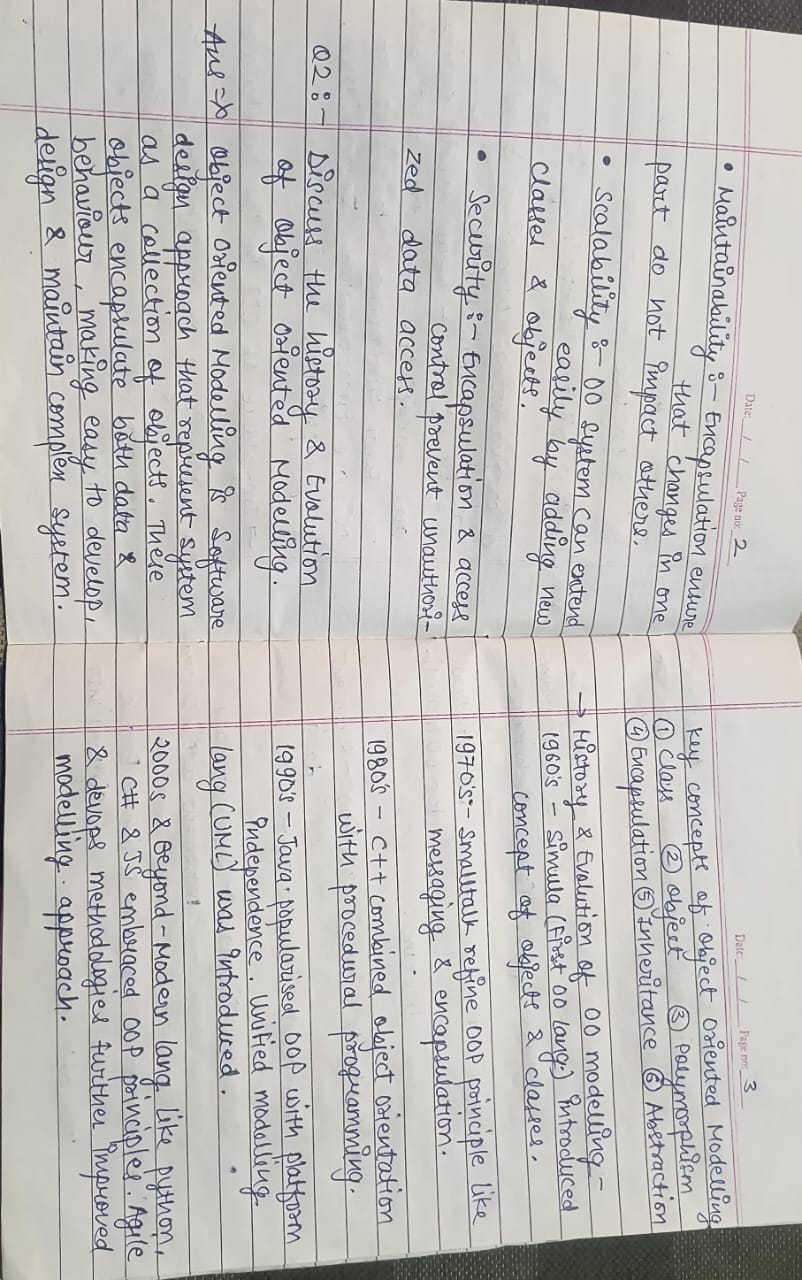 Date: / / Page no: 2
• Maintainability :- Encapsulation ensure
that changes in one
part do not impact others.
• Scalability :- OO System can extend
easily by adding new
classes & objects.
• Security :- Encapsulation & access
control prevent unauthori-
zed data access.
Q2 :- Discuss the history & Evolution
of Object Oriented Modelling.
Ans => Object Oriented Modelling is Software
design approach that represent system
as a collection of objects. These
objects encapsulate both data &
behaviour, making easy to develop,
design & maintain complex system.
Date: / / Page no: 3
Key concepts of Object Oriented Modelling
① Class ② Object ③ Polymorphism
④ Encapsulation ⑤ Inheritance ⑥ Abstraction
→ History & Evolution of OO modelling -
1960's - Simula (First OO lang.) introduced
concept of objects & classes.
1970's - Smalltalk refine OOP principle like
messaging & encapsulation.
1980's - C++ combined object orientation
with procedural programming.
1990's - Java popularised OOP with platform
independence. Unified modelling
lang (UML) was introduced.
2000s & Beyond - Modern lang like python,
C# & JS embraced OOP principles. Agile
& devops methodologies further improved
modelling approach.